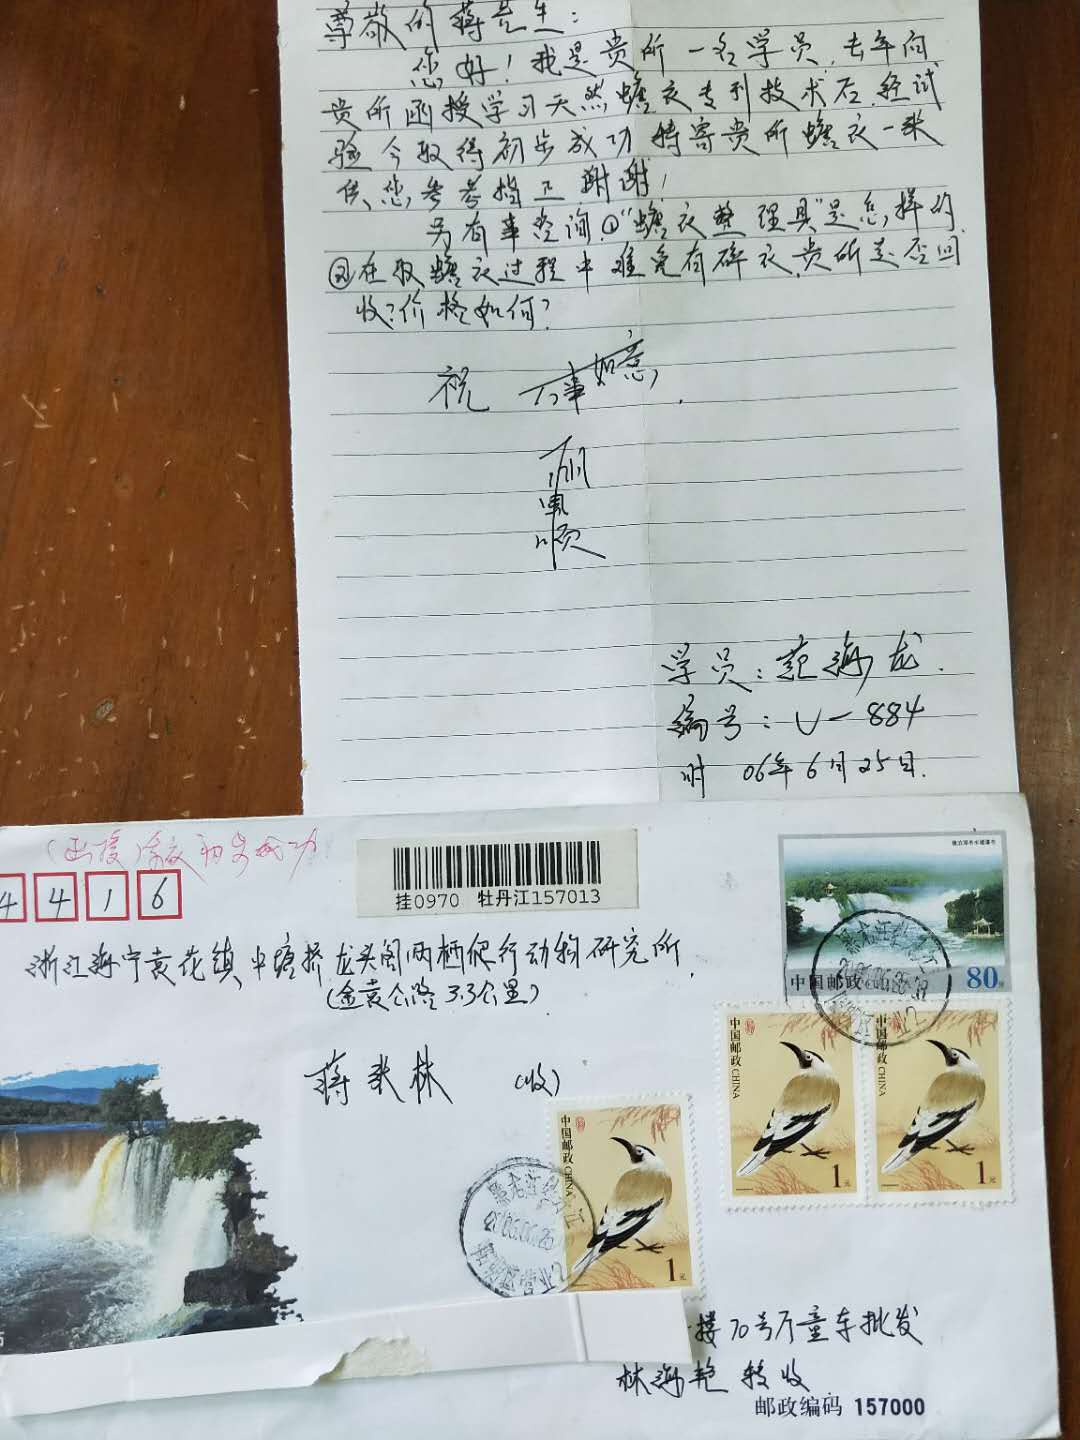 尊敬的蒋先生：
您好！我是贵所一名学员，去年向
贵所函授学习天然蟾衣专利技术后，经试
验今取得初步成功特寄贵所蟾衣一张
供您参考指正，谢谢！
另有事咨询，①“蟾衣整理具”是怎样的，
②在取蟾衣过程中难免有碎衣，贵所是否回
收？价格如何？
祝 万事如意，
顺
学员：范海龙.
编号：V-884
时 06年6月25日.
(函授)
初步成功
4 4 1 6
挂0970 牡丹江157013
浙江海宁袁花镇中塘桥龙头阁两栖爬行动物研究所，
(金袁公路3.3公里)
蒋来林 (收)
中国邮政 80分
中国邮政 CHINA
1元
中国邮政 CHINA
1元
中国邮政 CHINA
1元
楼70号厅童车批发
林海艳 转收
邮政编码 157000